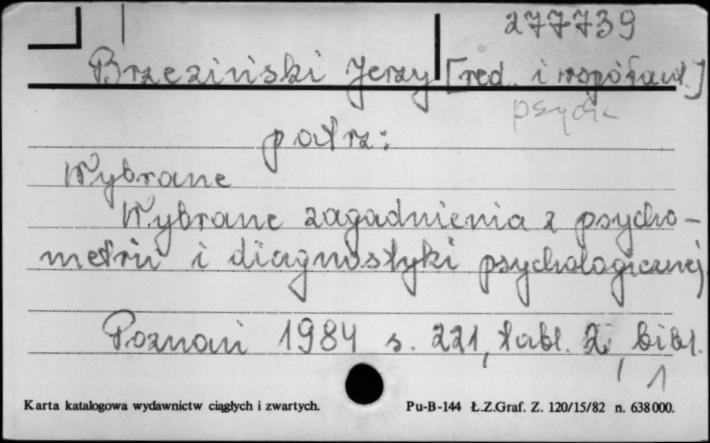 277739
Brzeziński Jerzy [red. i współaut.]
psych
patrz:
Wybrane
Wybrane zagadnienia z psycho-
metrii i diagnostyki psychologicznej
Poznań 1984 s. 221, tabl. 2, bibl.
1
Karta katalogowa wydawnictw ciągłych i zwartych. Pu-B-144 Ł.Z.Graf. Z. 120/15/82 n. 638000.